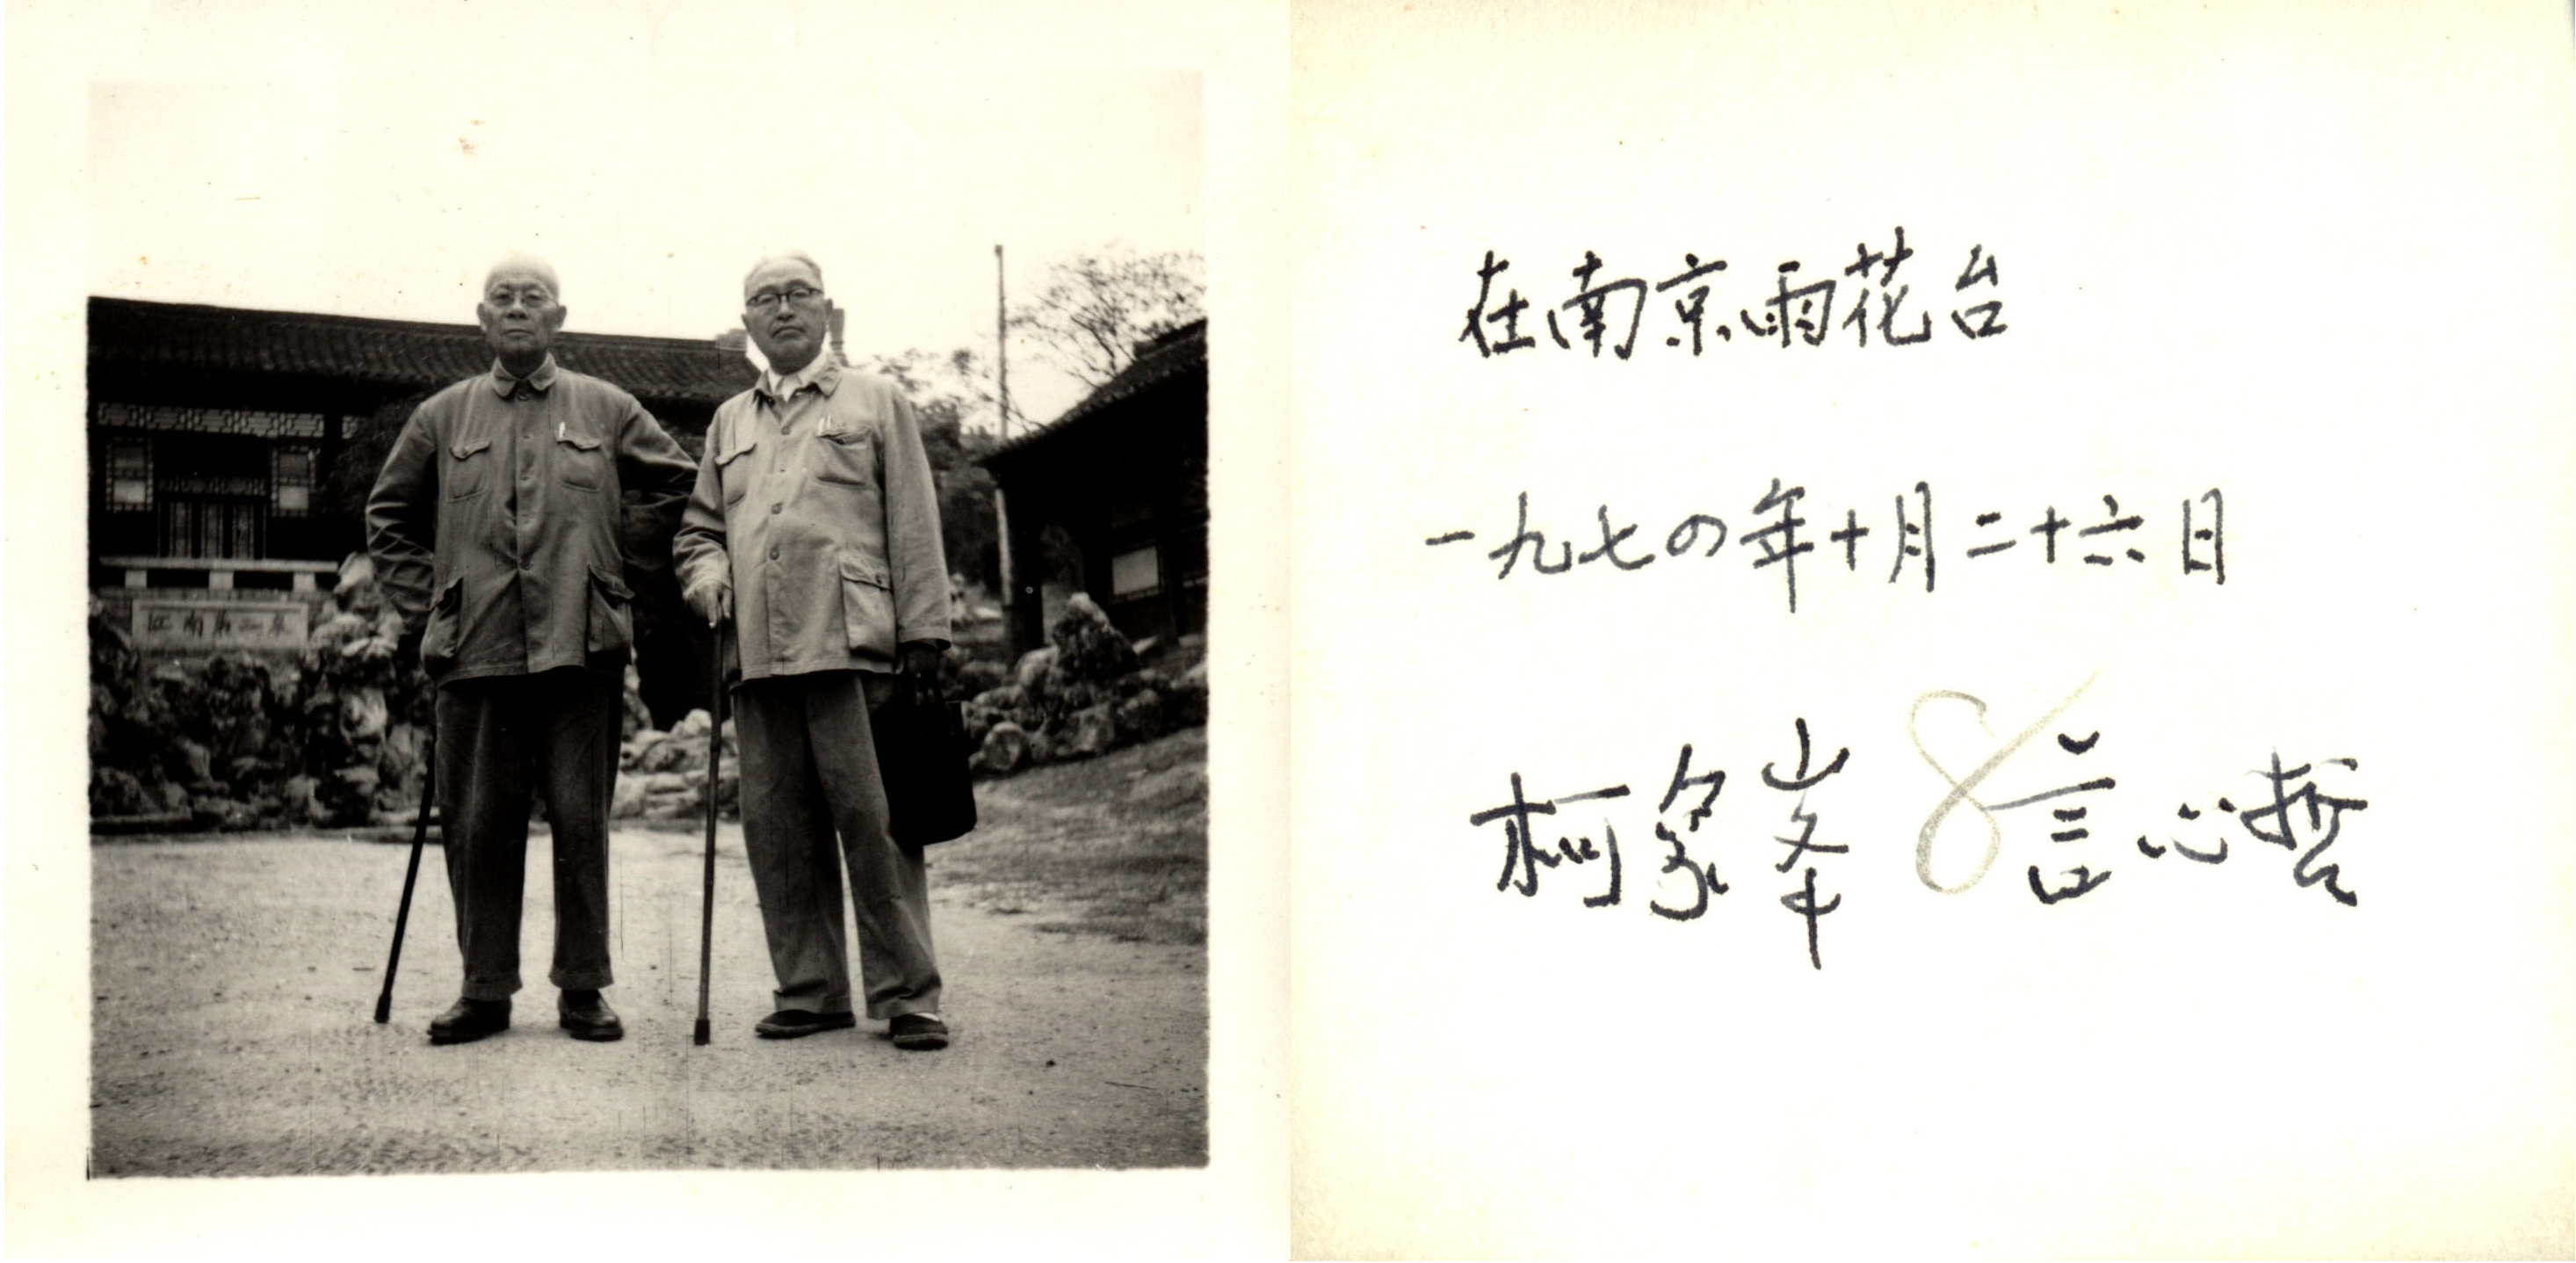 江南第二泉
在南京雨花台
一九七四年十月二十六日
柯象峯 言心哲